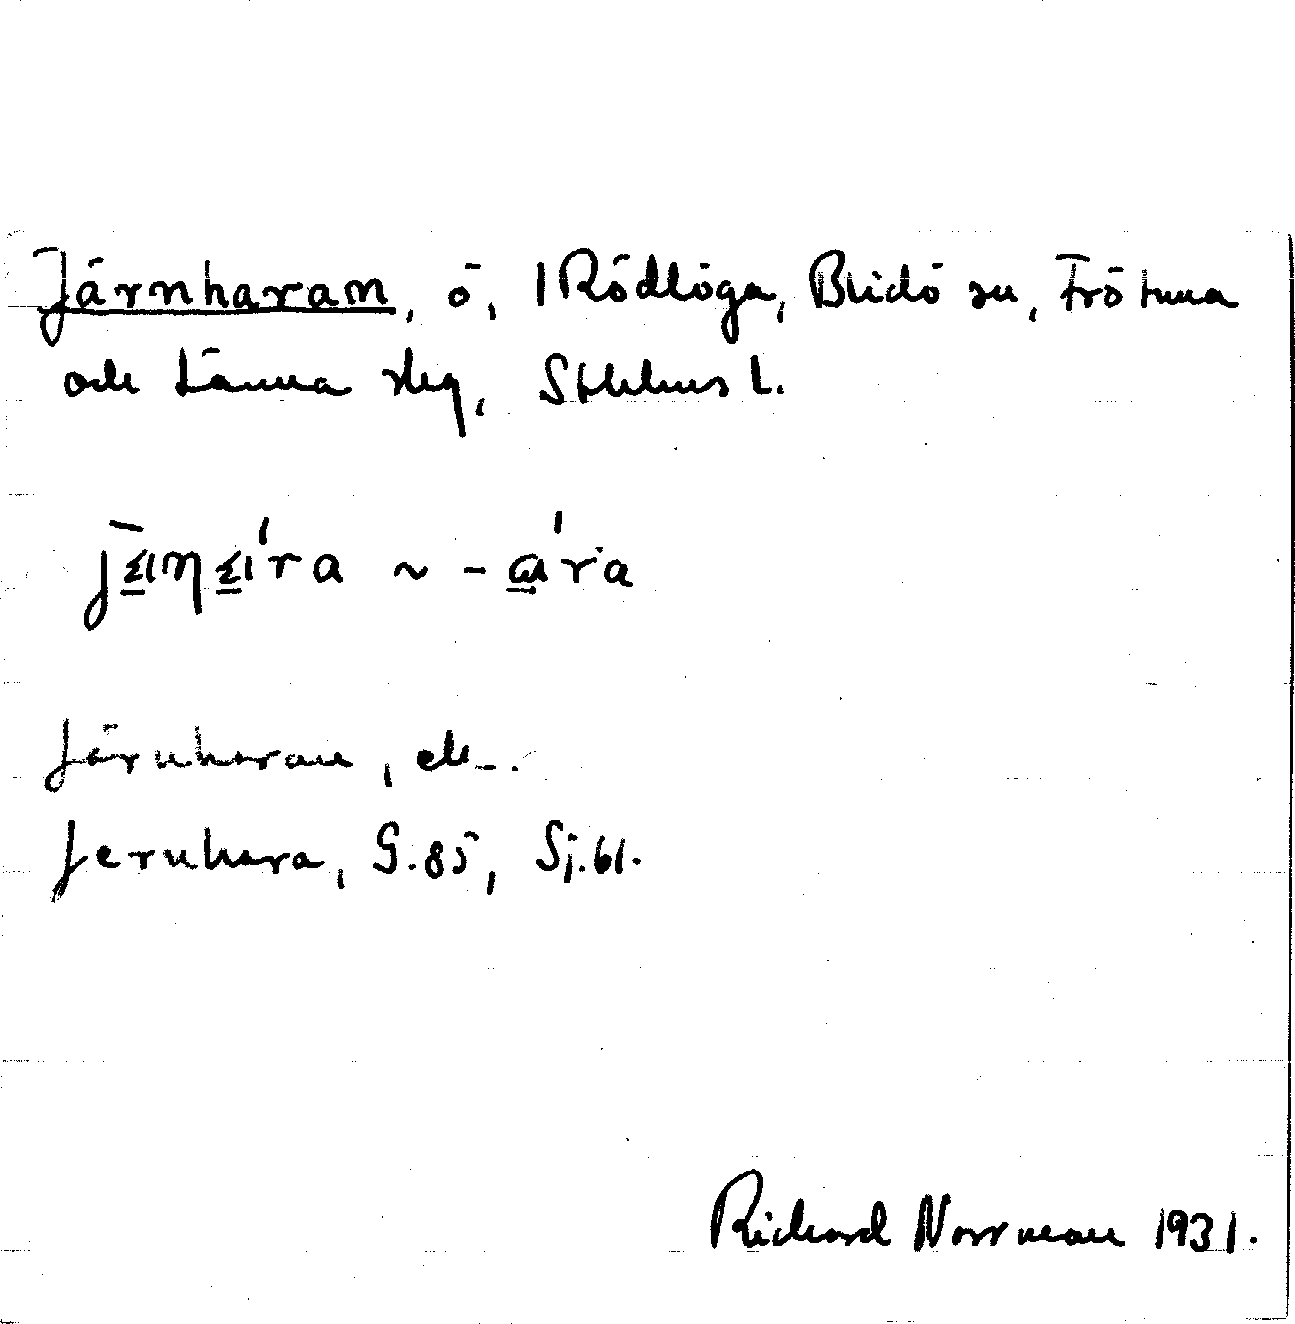 Järnharam, ö, 1 Rödlöga, Blidö sn, Frötuna
och Länna slg, Sthlms l.
Järnharam, ek.
Jernhara, G.85, Sj.61.
Richard Norrman 1931.